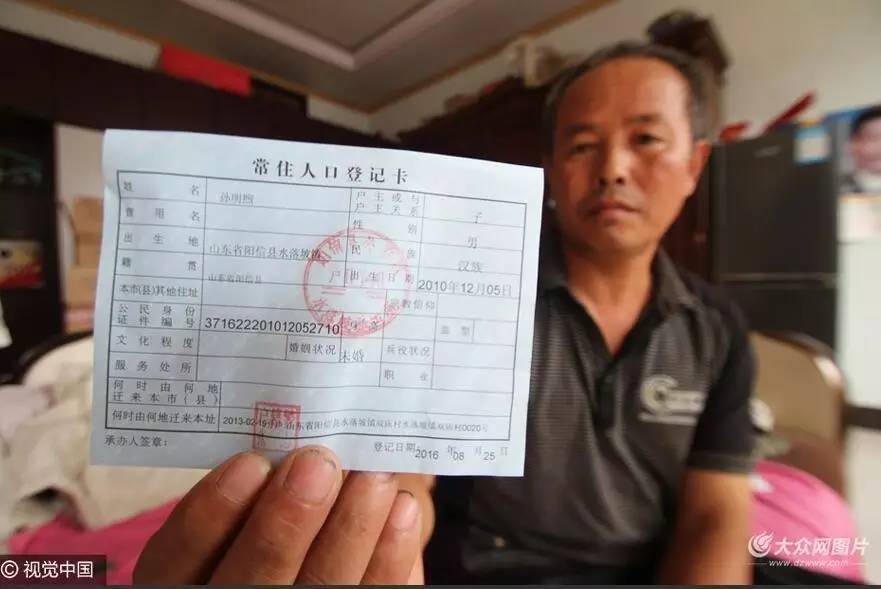 常住人口登记卡
姓名 孙明煦 户主或与户主关系 子
曾用名 性别 男
出生地 山东省阳信县水落坡镇 民族 汉族
籍贯 山东省阳信县 出生日期 2010年12月05日
本市(县)其他住址 宗教信仰
公民身份证件编号 371622201012052710 血型
文化程度 婚姻状况 未婚 兵役状况
服务处所 职业
何时由何地迁来本市(县)
何时由何地迁来本址 2013-02-19 山东省阳信县水落坡镇双庙村水落坡镇双庙村0020号
承办人签章: 登记日期:2016年08月25日
©视觉中国
大众网图片
www.dzwww.com